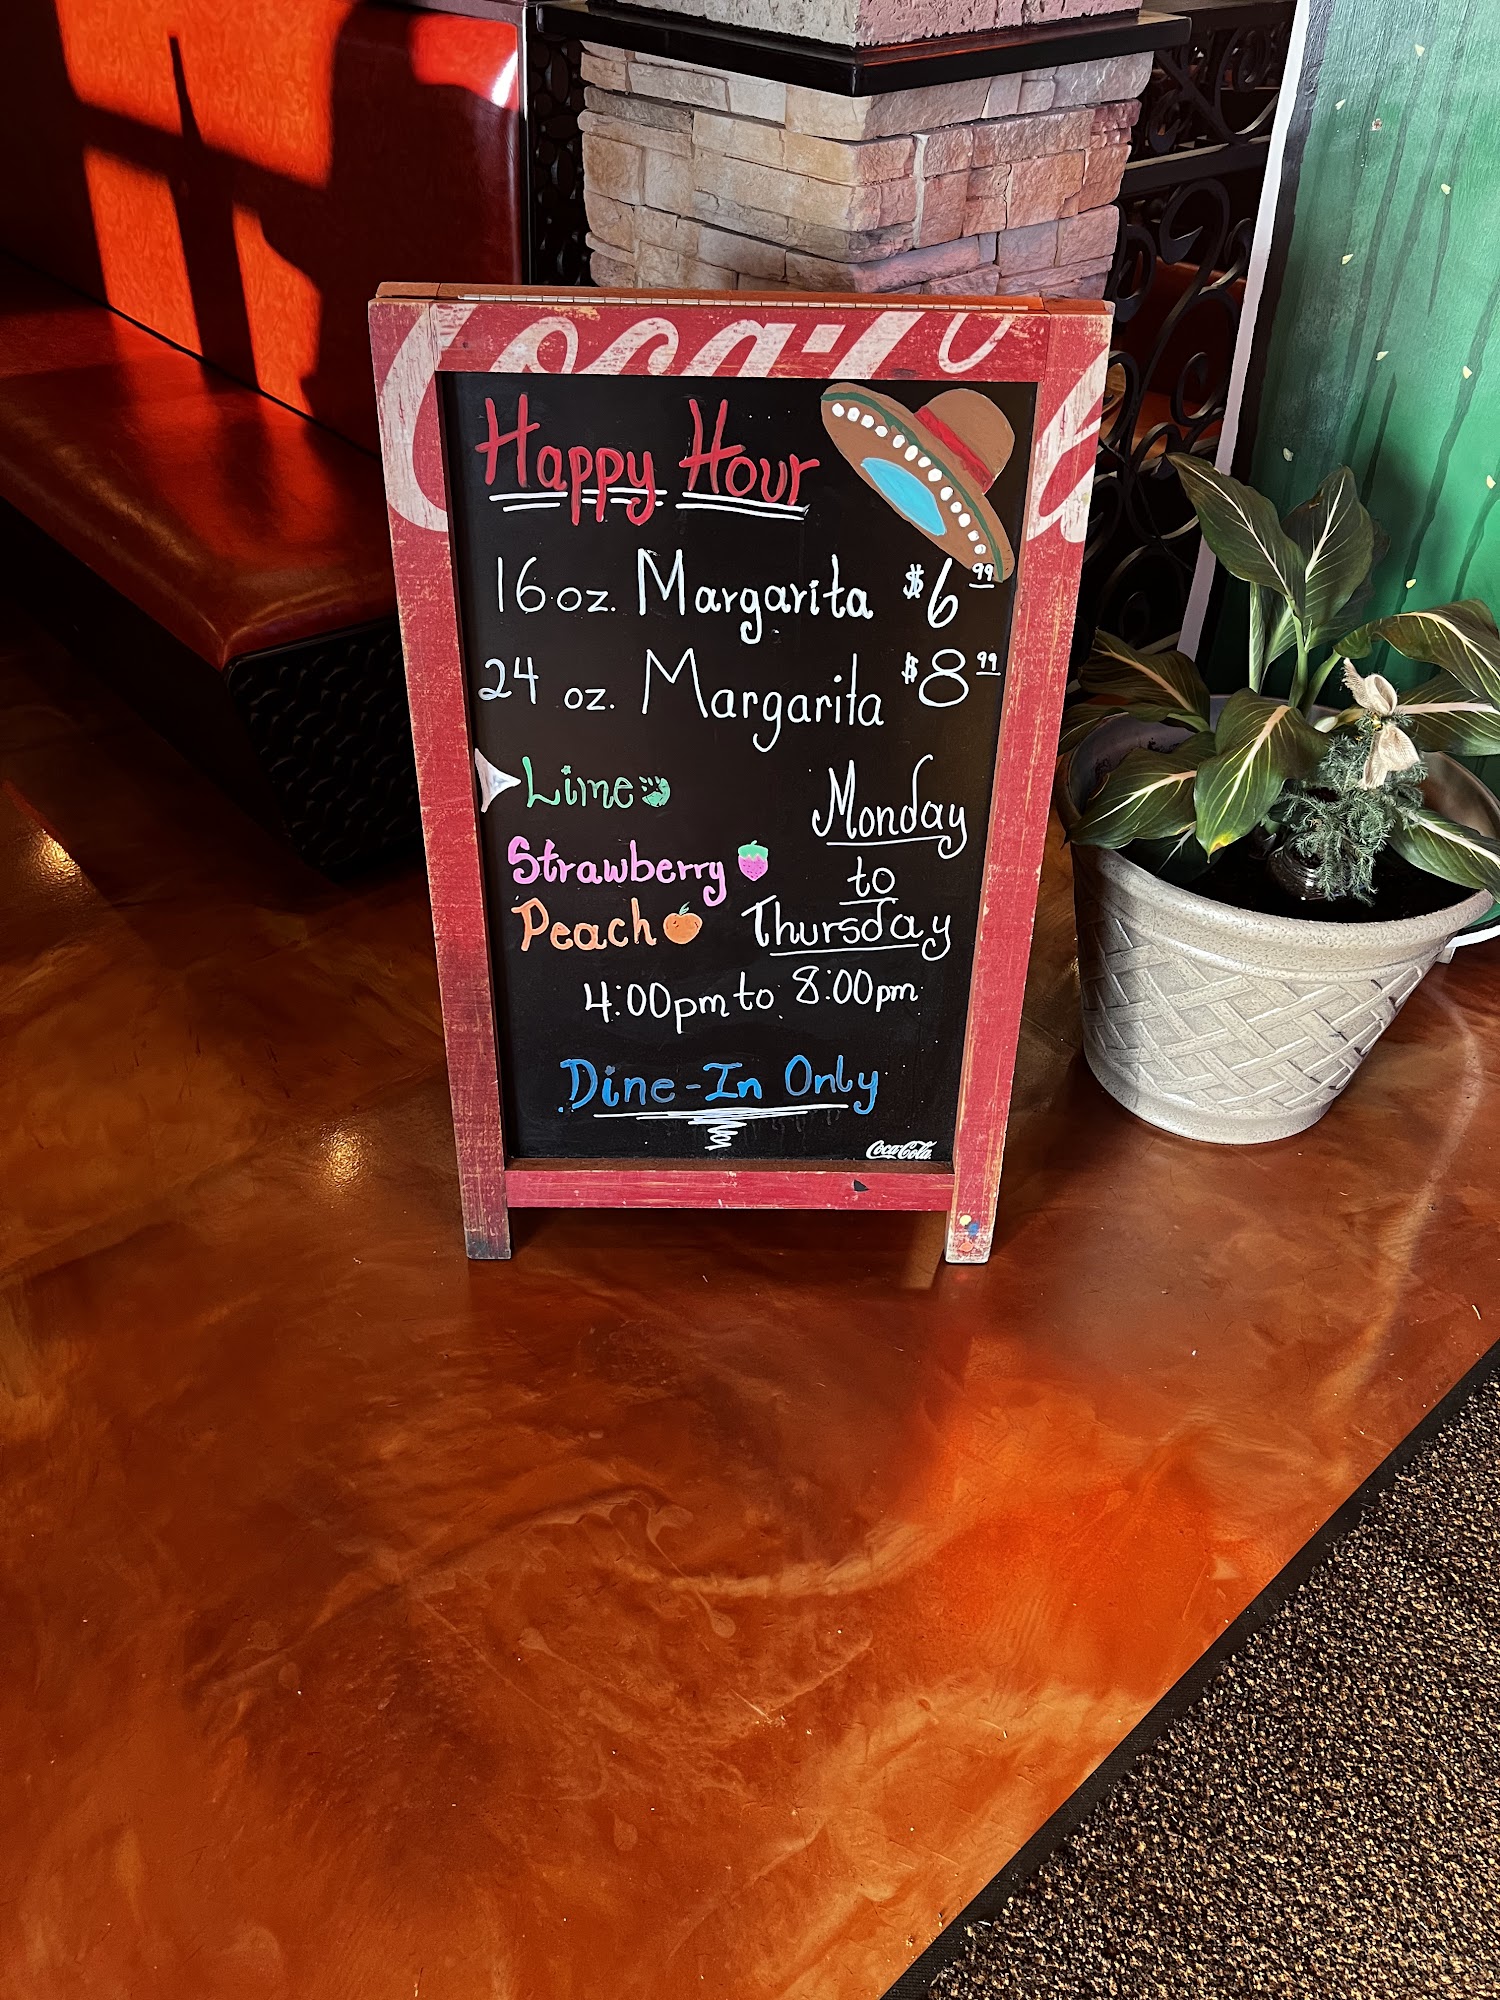 Coca-Co
Happy Hour
16 oz. Margarita $6.99
24 oz. Margarita $8.99
Lime
Strawberry
Peach
Monday
to
Thursday
4:00pm to 8:00pm
Dine-In Only
Coca-Cola